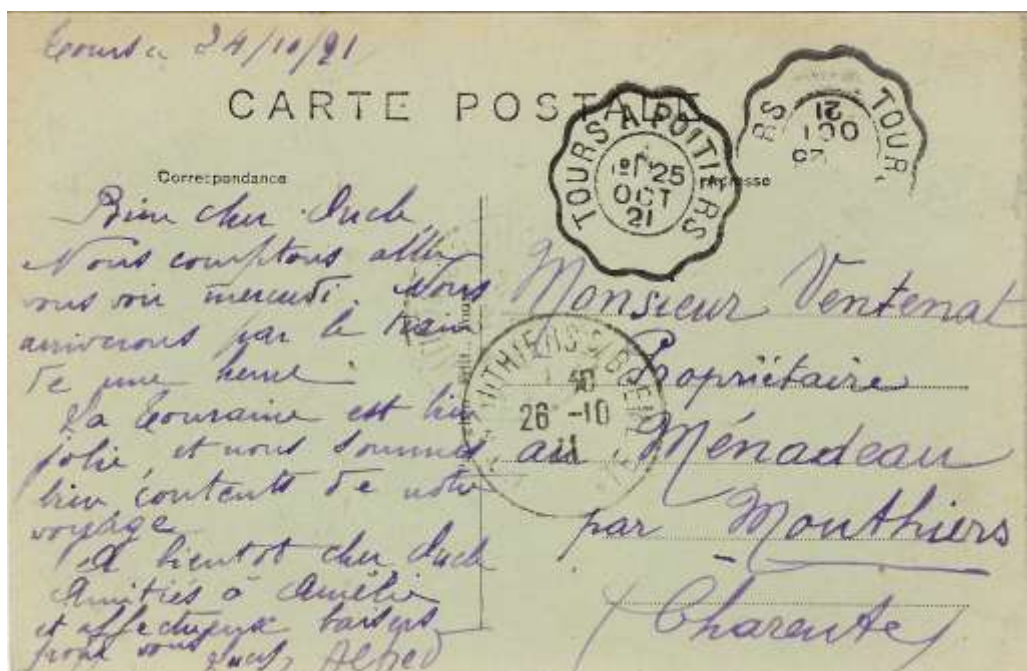 Tours 24/10/21
CARTE POSTALE
TOURS A POITIERS
25
OCT
21
TOUR RS
OCT
21
Correspondance
Bien cher Oncle
Nous comptons aller
vous voir mercredi. Nous
arriverons par le train
de une heure.
La Touraine est bien
jolie, et nous sommes
bien contents de notre
voyage
A bientot cher Oncle
Amitiés à Amélie
et affectueux baisers
pour vous Alfred
Monsieur Ventenat
Propriétaire
au Ménadeau
par Mouthiers
(Charente)
MOUTHIERS S/ BOEME
26 -10
21